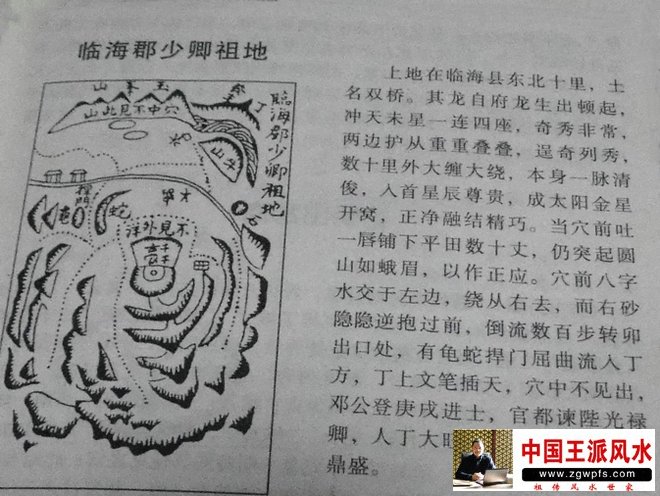 临海郡少卿祖地
山此見不中穴
丁
臨海郡少卿祖地
捍門
蛇
石
洋外見不
上地在临海县东北十里，土
名双桥。其龙自府龙生出顿起，
冲天未星一连四座，奇秀非常，
两边护从重重叠叠，逞奇列秀，
数十里外大缠大绕，本身一脉清
俊，入首星辰尊贵，成太阳金星
开窝，正净融结精巧。当穴前吐
一唇铺下平田数十丈，仍突起圆
山如蛾眉，以作正应。穴前八字
水交于左边，绕从右去，而右砂
隐隐逆抱过前，倒流数百步转卯
出口处，有龟蛇捍门屈曲流入丁
方，丁上文笔插天，穴中不见出，
邓公登庚戌进士，官都谏陛光禄
卿，人丁大
鼎盛。
中国王派风水
www.zgwpfs.com
祖传风水世家